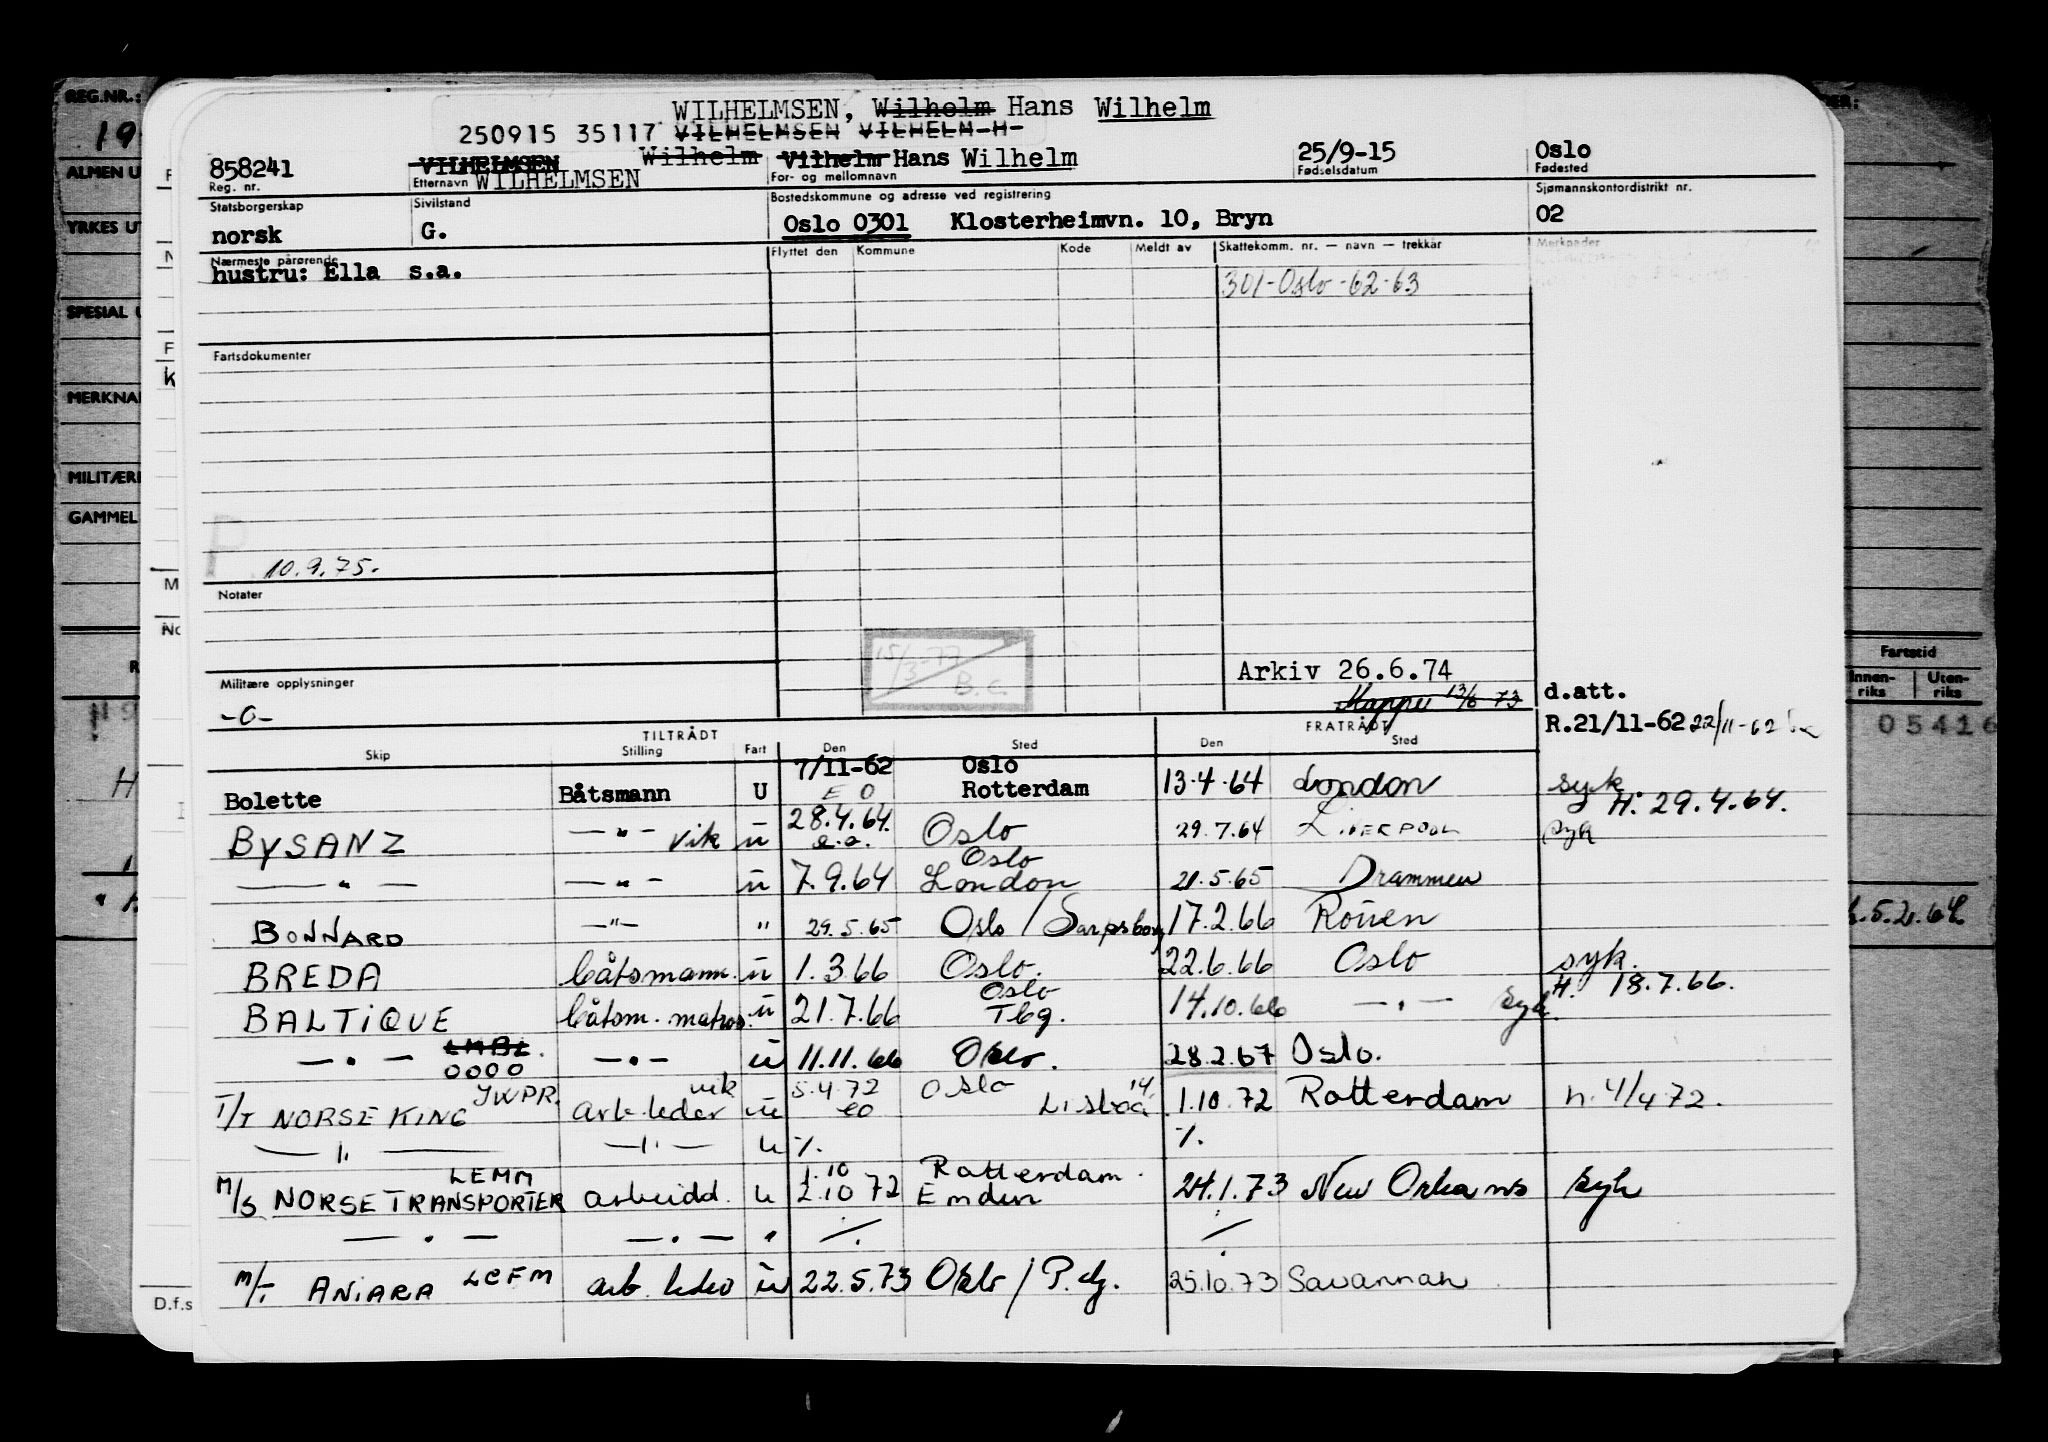 WILHELMSEN, Wilhelm Hans Wilhelm
250915 35117 VILHELMSEN VILHELM H-
858241 VILHELMSEN Wilhelm Vilhelm Hans Wilhelm 25/9-15 Oslo
Reg. nr. Etternavn WILHELMSEN For- og mellomnavn Fødselsdatum Fødested
Statsborgerskap Sivilstand Bostedskommune og adresse ved registrering Sjømannskontordistrikt nr.
norsk G. Oslo 0301 Klosterheimvn. 10, Bryn 02
Nærmeste pårørende Flyttet den Kommune Kode Meldt av Skattekomm. nr. — navn — trekkår Merknader
hustru: Ella s.a. 301-Oslo-62-63
Fartsdokumenter
P 10.9.75.
Notater
15/3-77 B.C.
Arkiv 26.6.74
Militære opplysninger Mappe 13/6 73 d.att.
-0-
R.21/11-62 22/11-62
TILTRÅDT FRATRÅDT
Skip Stilling Fart Den Sted Den Sted
7/11-62 Oslo
Bolette Båtsmann U E O Rotterdam 13.4.64 London syk H. 29.4.64.
BYSANZ —"— vik u 28.4.64. e.o. Oslo 29.7.64 LIVERPOOL syk
—"— —"— u 7.9.64 Oslo London 21.5.65 Drammen
BONNARD —"— " 29.5.65 Oslo / Sarpsborg 17.2.66 Rouen
BREDA båtsmann. u 1.3.66 Oslo. 22.6.66 Oslo syk. H. 18.7.66.
BALTIQUE båtsm. matros. u 21.7.66 Oslo Tbg. 14.10.66 —"— syk.
—"— LMBL. 0000 —"— u 11.11.66 Oslo. 28.2.67 Oslo.
T/T NORSE KING JWPR. arb leder vik u 5.4.72 eo Oslo Lisboa 14/ 1.10.72 Rotterdam h. 4/4 72.
—"— —"— u %. %.
M/S NORSE TRANSPORTER LEMM arbeidd. u 1.10 2.10 72 Rotterdam. Emden 24.1.73 New Orleans syk
—"— —"— " /. /.
M/T ANIARA LCFM arb. leder u 22.5.73 Oslo / P. 25.10.73 Savannah
REG.NR.:
19
ALMEN U
YRKES UT
SPESIAL U
MERKNA
MILITÆRE
GAMMEL
D.f.s
Fartstid
Innen-riks Uten-riks
05416
5.2.64